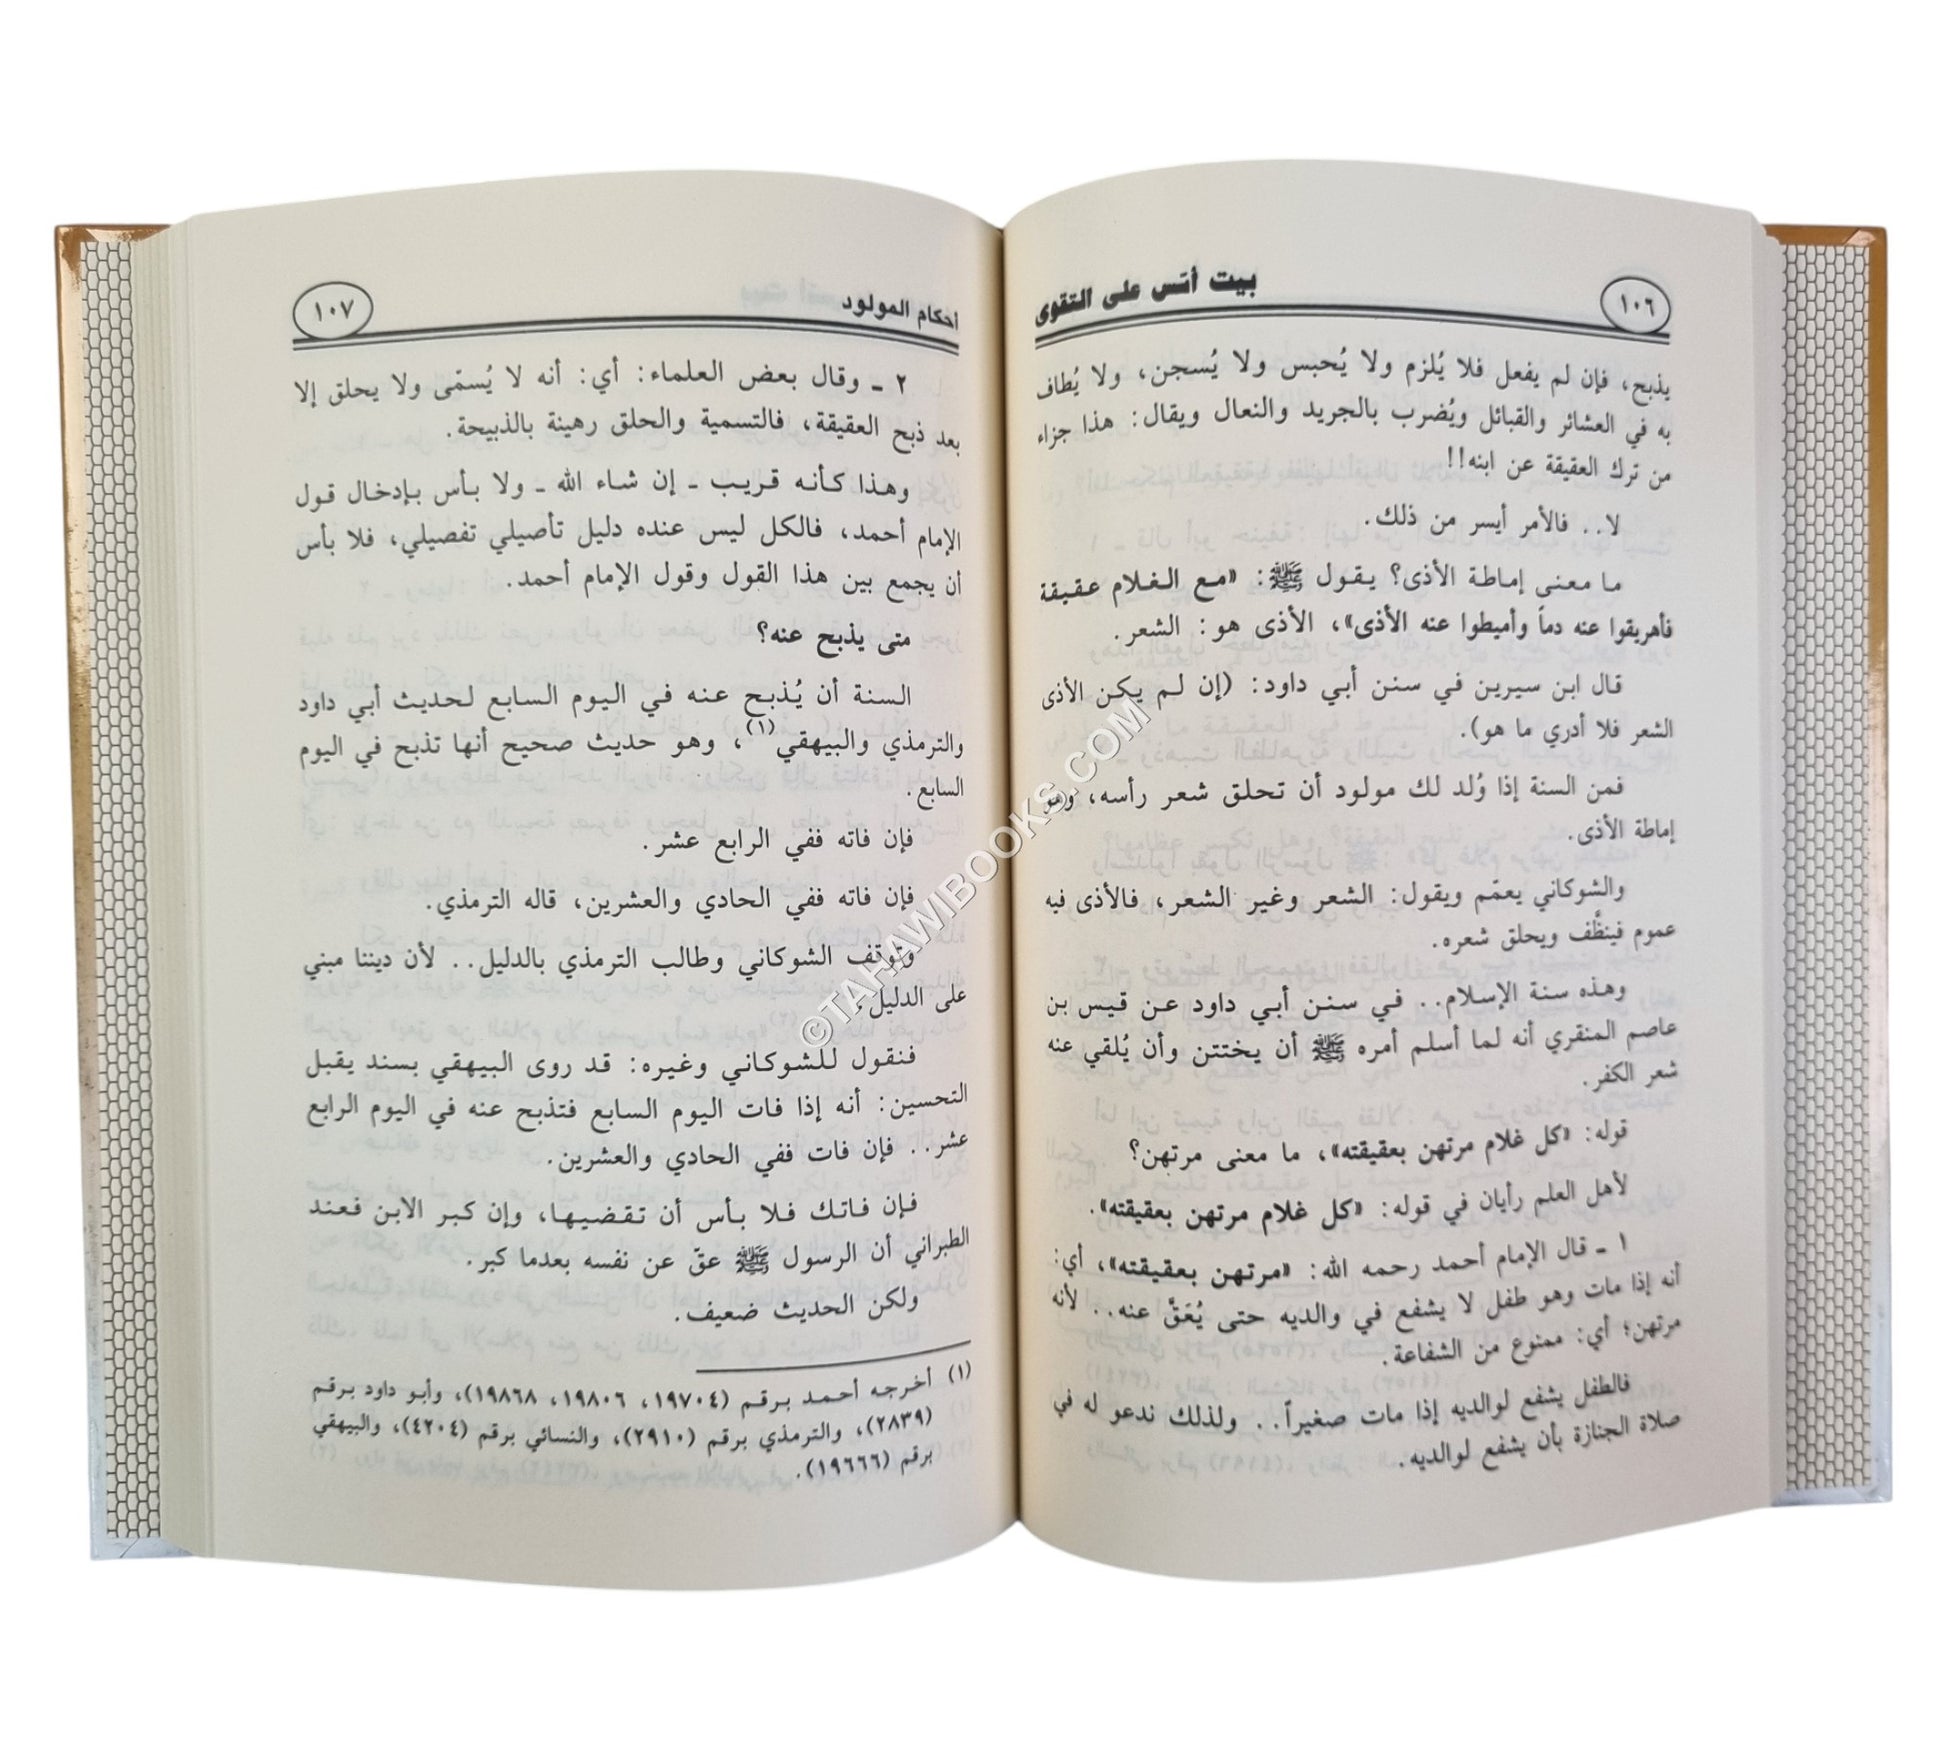 ١٠٦
بيت أسّس على التقوى
يذبح، فإن لم يفعل فلا يُلزم ولا يُحبس ولا يُسجن، ولا يُطاف
به في العشائر والقبائل ويُضرب بالجريد والنعال ويقال: هذا جزاء
من ترك العقيقة عن ابنه!!
لا.. فالأمر أيسر من ذلك.
ما معنى إماطة الأذى؟ يقول ﷺ: «مع الغلام عقيقة
فأهريقوا عنه دماً وأميطوا عنه الأذى»، الأذى هو: الشعر.
قال ابن سيرين في سنن أبي داود: (إن لم يكن الأذى
الشعر فلا أدري ما هو).
فمن السنة إذا وُلد لك مولود أن تحلق شعر رأسه، وهو
إماطة الأذى.
والشوكاني يعمّم ويقول: الشعر وغير الشعر، فالأذى فيه
عموم فينظَّف ويحلق شعره.
وهذه سنة الإسلام.. في سنن أبي داود عن قيس بن
عاصم المنقري أنه لما أسلم أمره ﷺ أن يختتن وأن يُلقي عنه
شعر الكفر.
قوله: «كل غلام مرتهن بعقيقته»، ما معنى مرتهن؟
لأهل العلم رأيان في قوله: «كل غلام مرتهن بعقيقته».
١ ـ قال الإمام أحمد رحمه الله: «مرتهن بعقيقته»، أي:
أنه إذا مات وهو طفل لا يشفع في والديه حتى يُعَقَّ عنه.. لأنه
مرتهن؛ أي: ممنوع من الشفاعة.
فالطفل يشفع لوالديه إذا مات صغيراً.. ولذلك ندعو له في
صلاة الجنازة بأن يشفع لوالديه.
أحكام المولود
١٠٧
٢ ـ وقال بعض العلماء: أي: أنه لا يُسمّى ولا يحلق إلا
بعد ذبح العقيقة، فالتسمية والحلق رهينة بالذبيحة.
وهذا كأنه قريب ـ إن شاء الله ـ ولا بأس بإدخال قول
الإمام أحمد، فالكل ليس عنده دليل تأصيلي تفصيلي، فلا بأس
أن يجمع بين هذا القول وقول الإمام أحمد.
متى يذبح عنه؟
السنة أن يُذبح عنه في اليوم السابع لحديث أبي داود
والترمذي والبيهقي(١)، وهو حديث صحيح أنها تذبح في اليوم
السابع.
فإن فاته ففي الرابع عشر.
فإن فاته ففي الحادي والعشرين، قاله الترمذي.
وتوقف الشوكاني وطالب الترمذي بالدليل.. لأن ديننا مبني
على الدليل.
فنقول للشوكاني وغيره: قد روى البيهقي بسند يقبل
التحسين: أنه إذا فات اليوم السابع فتذبح عنه في اليوم الرابع
عشر.. فإن فات ففي الحادي والعشرين.
فإن فاتك فلا بأس أن تقضيها، وإن كبر الابن فعند
الطبراني أن الرسول ﷺ عقّ عن نفسه بعدما كبر.
ولكن الحديث ضعيف.
(١) أخرجه أحمد برقم (١٩٧٠٤، ١٩٨٠٦، ١٩٨٦٨)، وأبو داود برقم
(٢٨٣٩)، والترمذي برقم (٢٩١٠)، والنسائي برقم (٤٢٠٤)، والبيهقي
برقم (١٩٦٦٦).
©TAHAWIBOOKS.COM